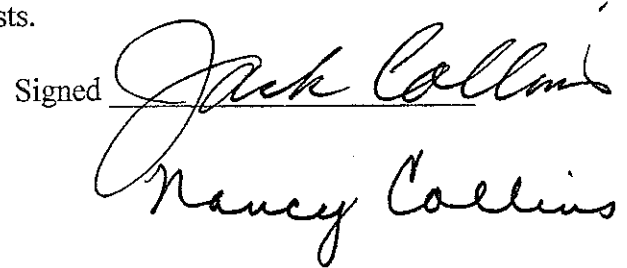 sts.
Signed Jack Collins
Nancy Collins